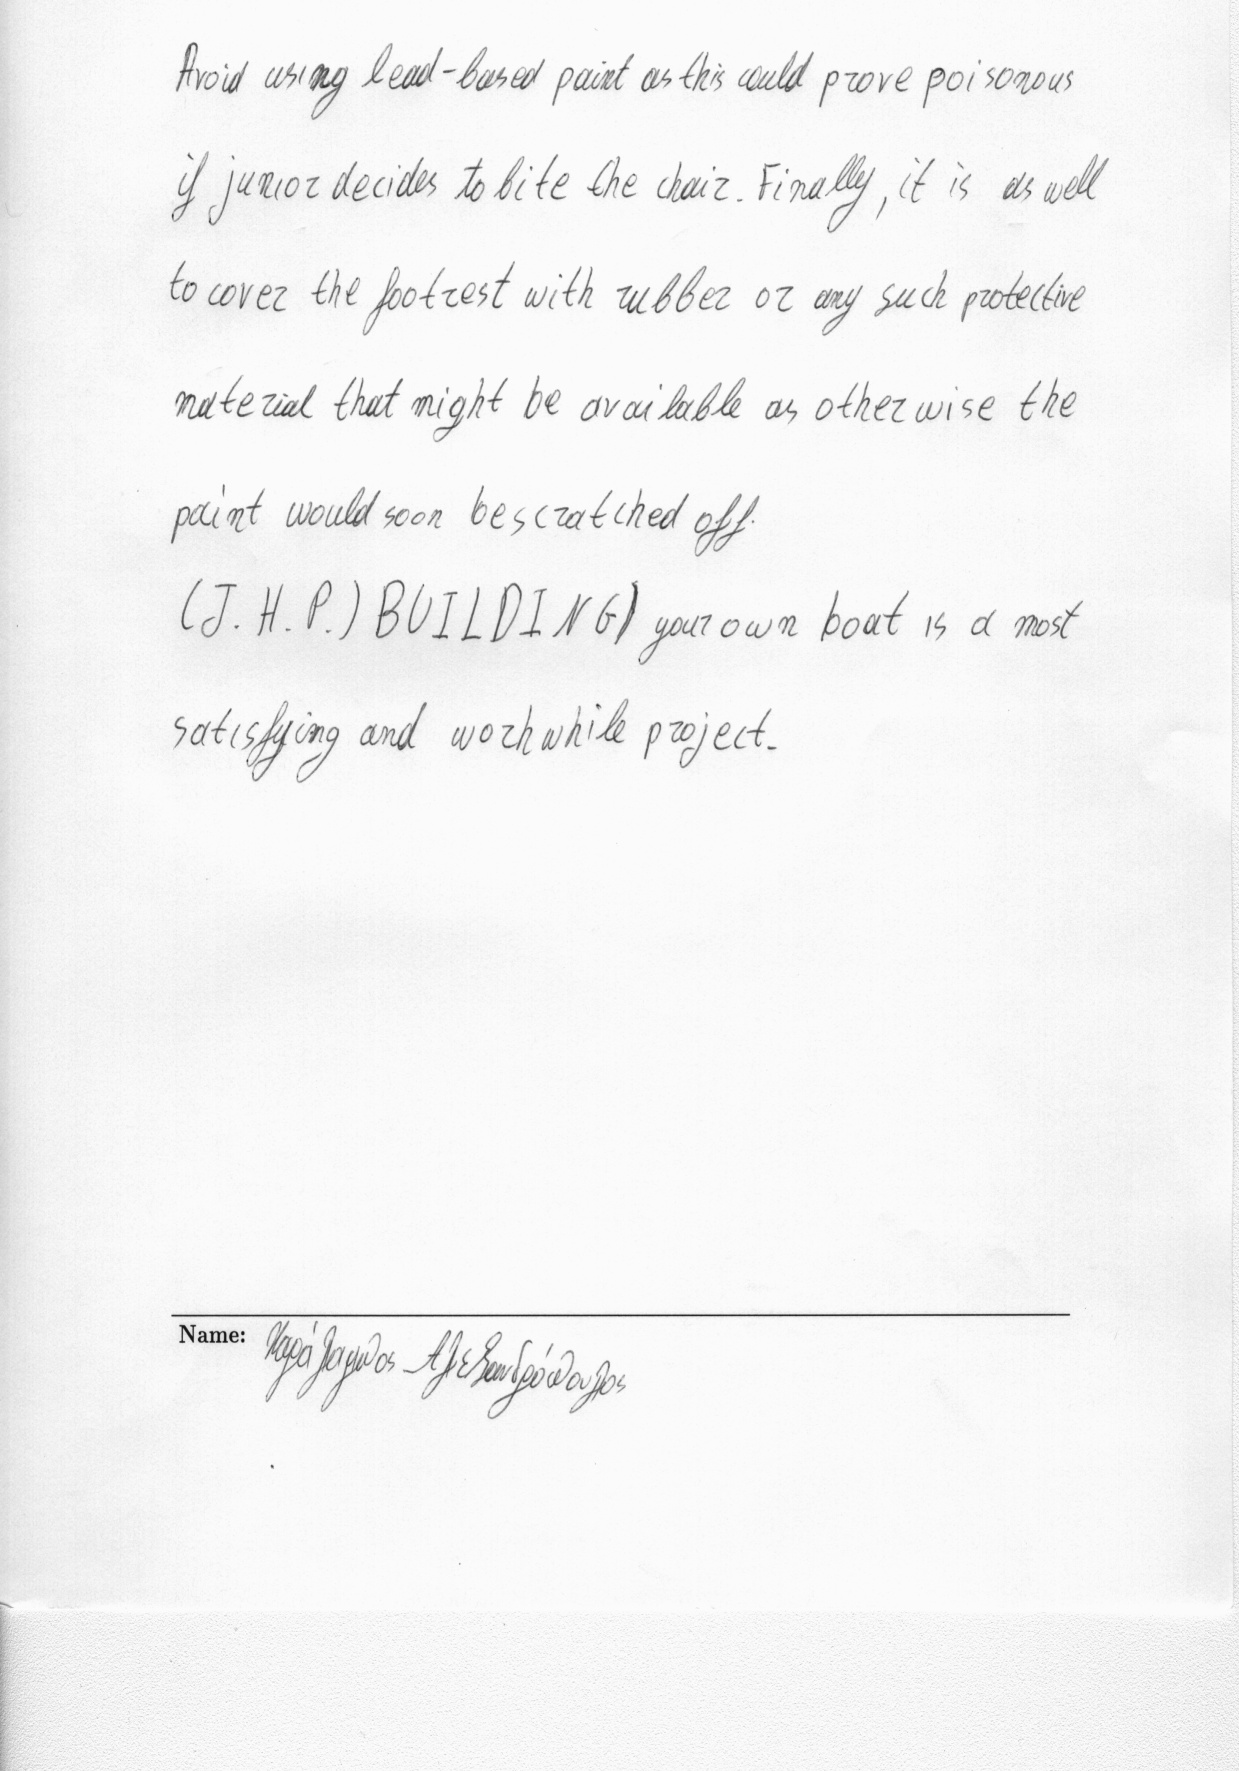 Avoid using lead-based paint as this could prove poisonous
if junior decides to bite the chair. Finally, it is as well
to cover the footrest with rubber or any such protective
material that might be available as otherwise the
paint would soon be scratched off.
(J.H.P.) BUILDING) your own boat is a most
satisfying and worhwhile project.
Name: Χαράλαμπος Αλεξανδρόπουλος